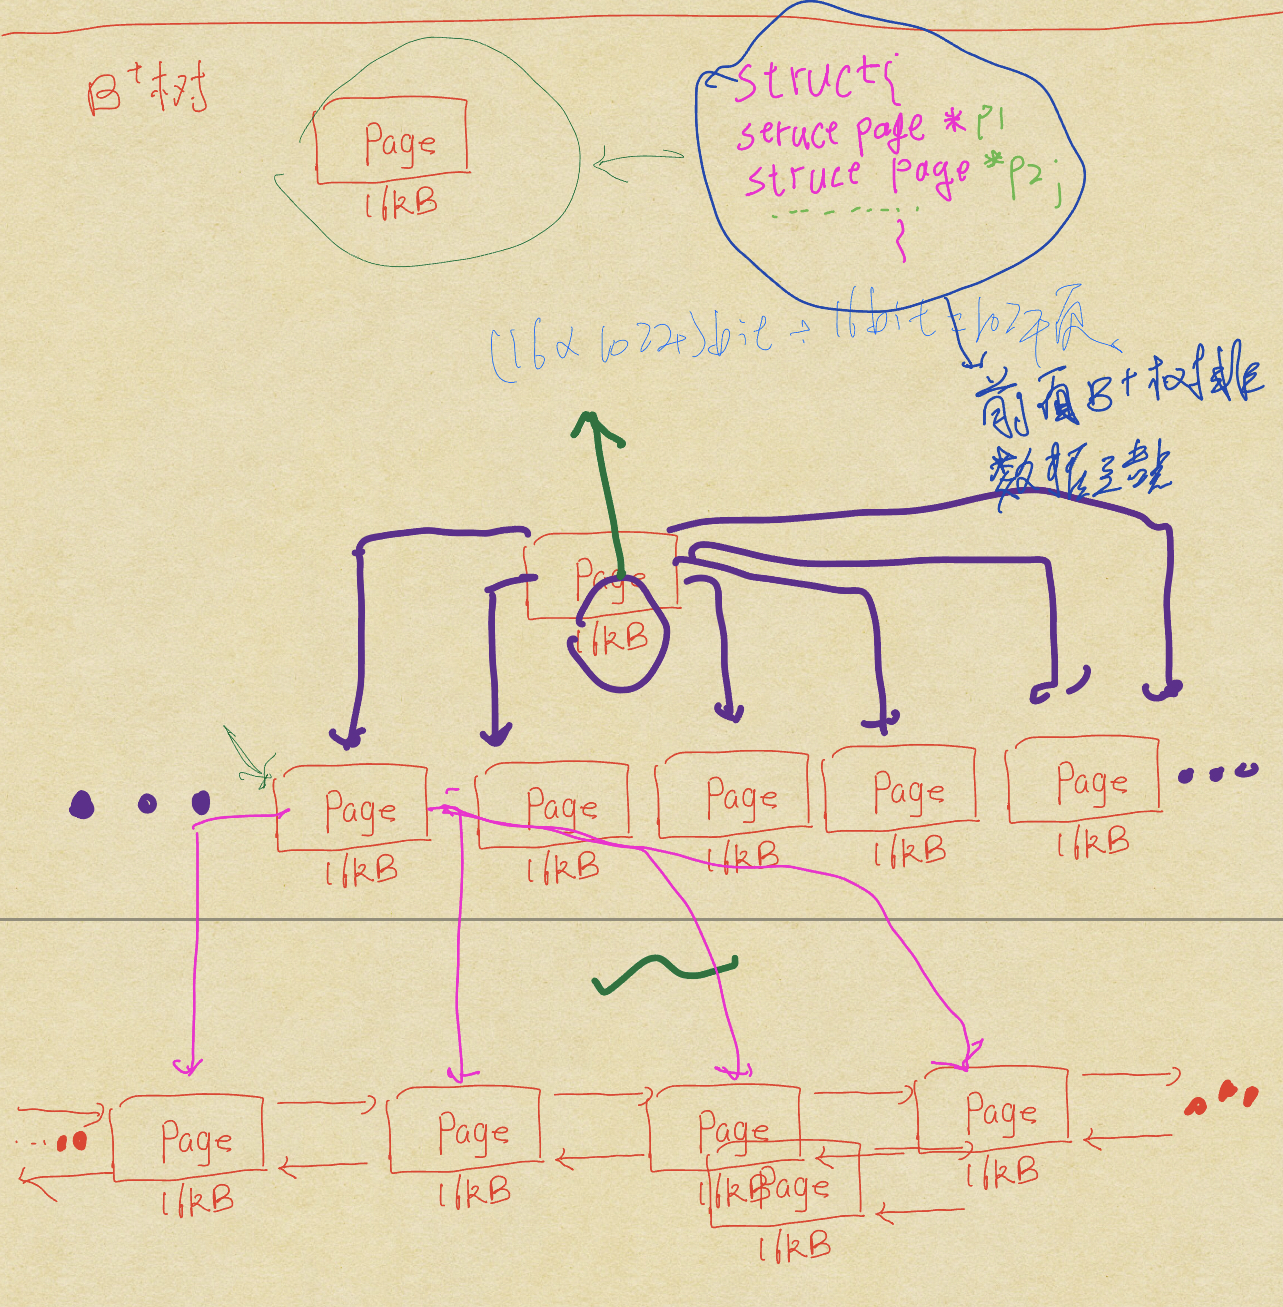 B+树
Page
16kB
struct{
seruce page * p1
struce page * p2;
}
前面B+树排
数据
Page
16kB
Page
16kB
Page
16kB
Page
16kB
Page
16kB
Page
16kB
Page
16kB
Page
16kB
Page
16kB
Page
16kB
Page
16kB